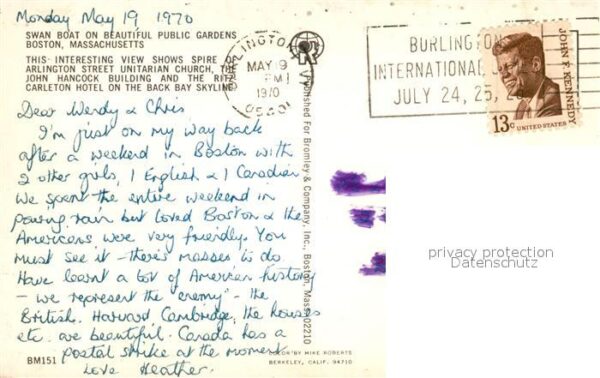 Monday May 19 1970
SWAN BOAT ON BEAUTIFUL PUBLIC GARDENS
BOSTON, MASSACHUSETTS
THIS INTERESTING VIEW SHOWS SPIRE OF
ARLINGTON STREET UNITARIAN CHURCH, THE
JOHN HANCOCK BUILDING AND THE RITZ
CARLETON HOTEL ON THE BACK BAY SKYLINE
Dear Wendy & Chris
I'm just on my way back
after a weekend in Boston with
2 other girls, 1 English & 1 Canadian
We spent the entire weekend in
pouring rain but loved Boston & the
Americans were very friendly. You
must see it – there's masses to do
Have learnt a lot of American history
– we represent the "enemy" – the
British. Harvard Cambridge, the houses
etc. are beautiful. Canada has a
postal strike at the moment
Love Heather.
BM151
COLOR BY MIKE ROBERTS
BERKELEY, CALIF. 94710
Published For Bromley & Company, Inc., Boston, Mass. 02210
LINGTON
MAY 19
PM
1970
BURLINGTON
INTERNATIONAL
JULY 24, 25, 2
JOHN F. KENNEDY
13c UNITED STATES
privacy protection
Datenschutz